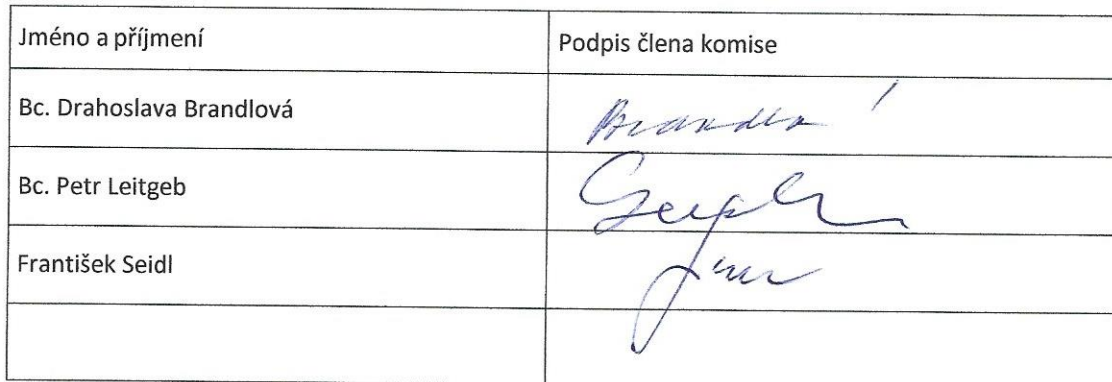 Jméno a příjmení
Podpis člena komise
Bc. Drahoslava Brandlová
Bc. Petr Leitgeb
František Seidl